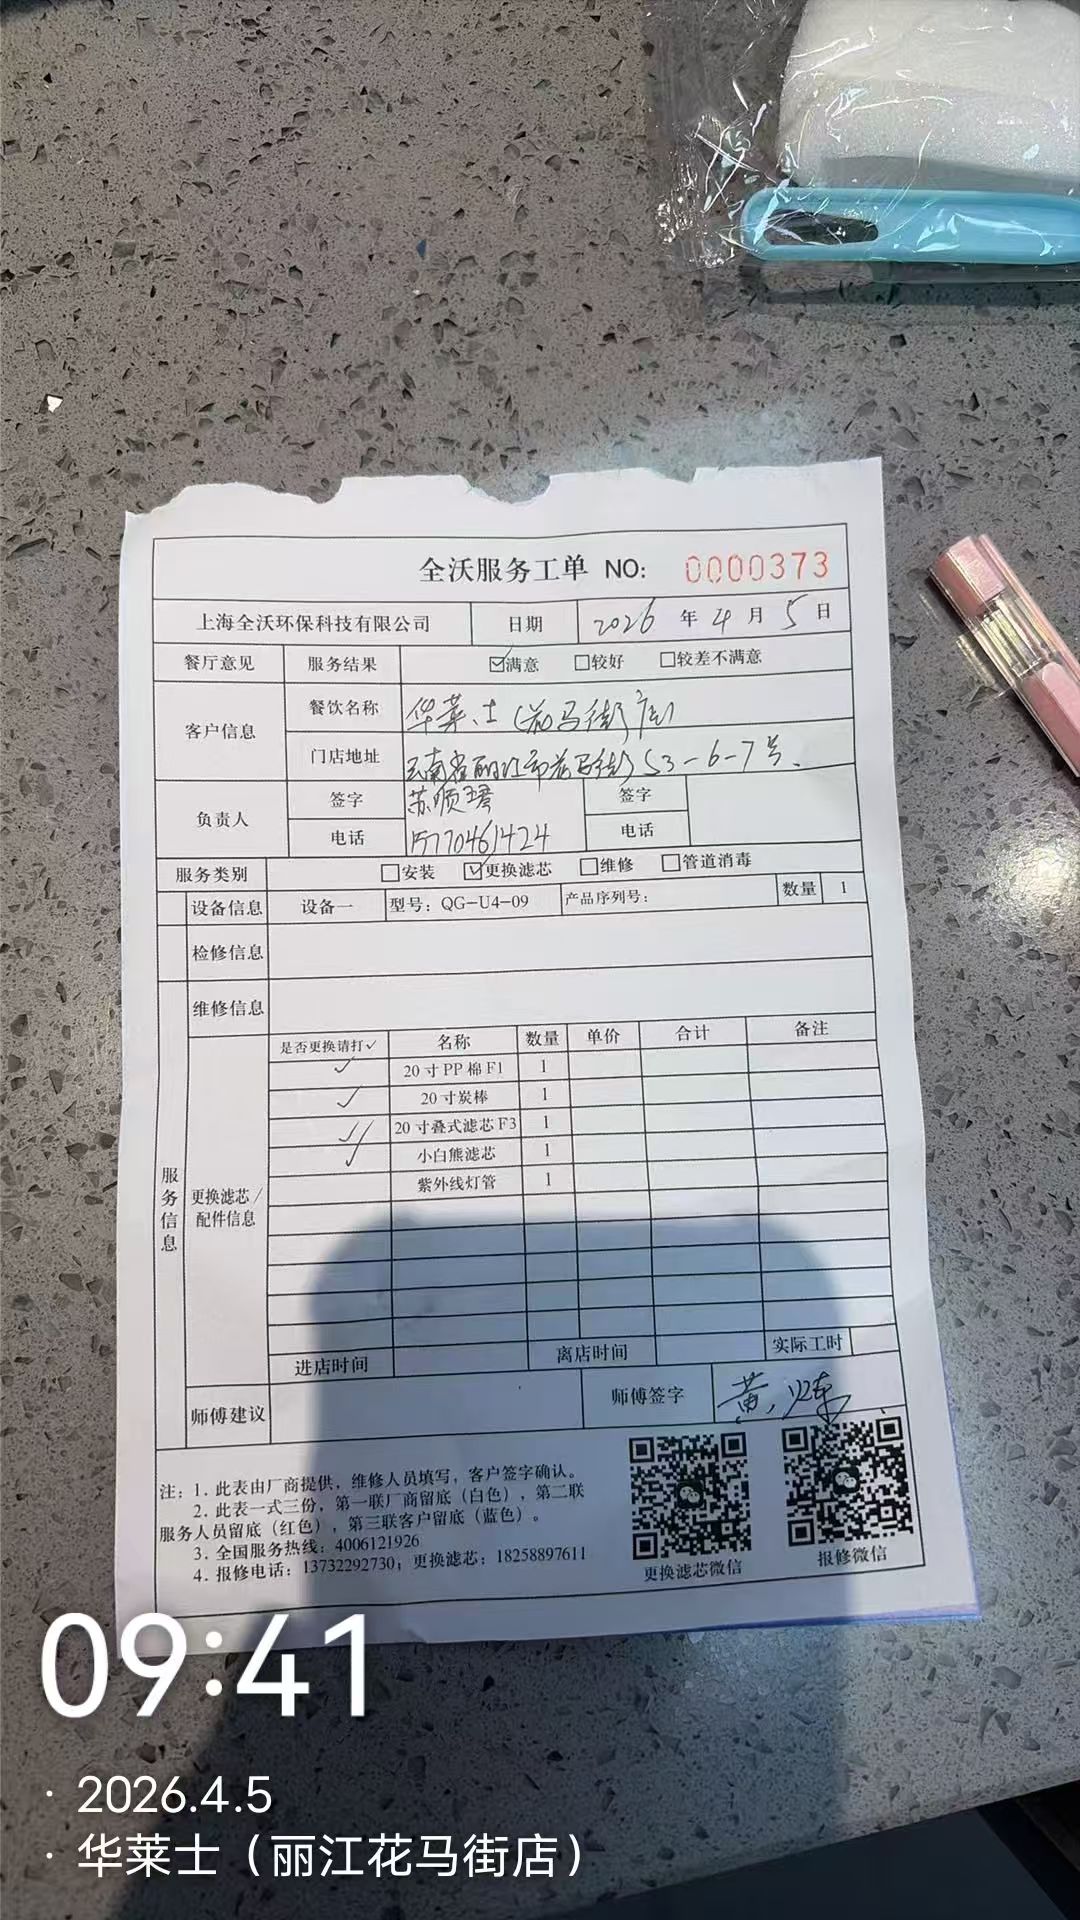 全沃服务工单 NO: 0000373
上海全沃环保科技有限公司 日期 2026 年 4 月 5 日
餐厅意见 服务结果 ☑满意 □较好 □较差不满意
客户信息 餐饮名称 华莱士（花马街店）
门店地址 云南省丽江市花马街53-6-7号.
负责人 签字 苏顺珺 签字
电话 15770461424 电话
服务类别 □安装 ☑更换滤芯 □维修 □管道消毒
设备信息 设备一 型号：QG-U4-09 产品序列号： 数量 1
检修信息
维修信息
服务信息
更换滤芯/配件信息
是否更换请打✓ 名称 数量 单价 合计 备注
✓ 20寸PP棉F1 1
✓ 20寸炭棒 1
✓ 20寸叠式滤芯F3 1
✓ 小白熊滤芯 1
紫外线灯管 1
进店时间 离店时间 实际工时
师傅建议 师傅签字 黄
注：1．此表由厂商提供，维修人员填写，客户签字确认。
2．此表一式三份，第一联厂商留底（白色），第二联
服务人员留底（红色），第三联客户留底（蓝色）。
3．全国服务热线：4006121926
4．报修电话：13732292730；更换滤芯：18258897611
更换滤芯微信 报修微信
09:41
· 2026.4.5
· 华莱士（丽江花马街店）